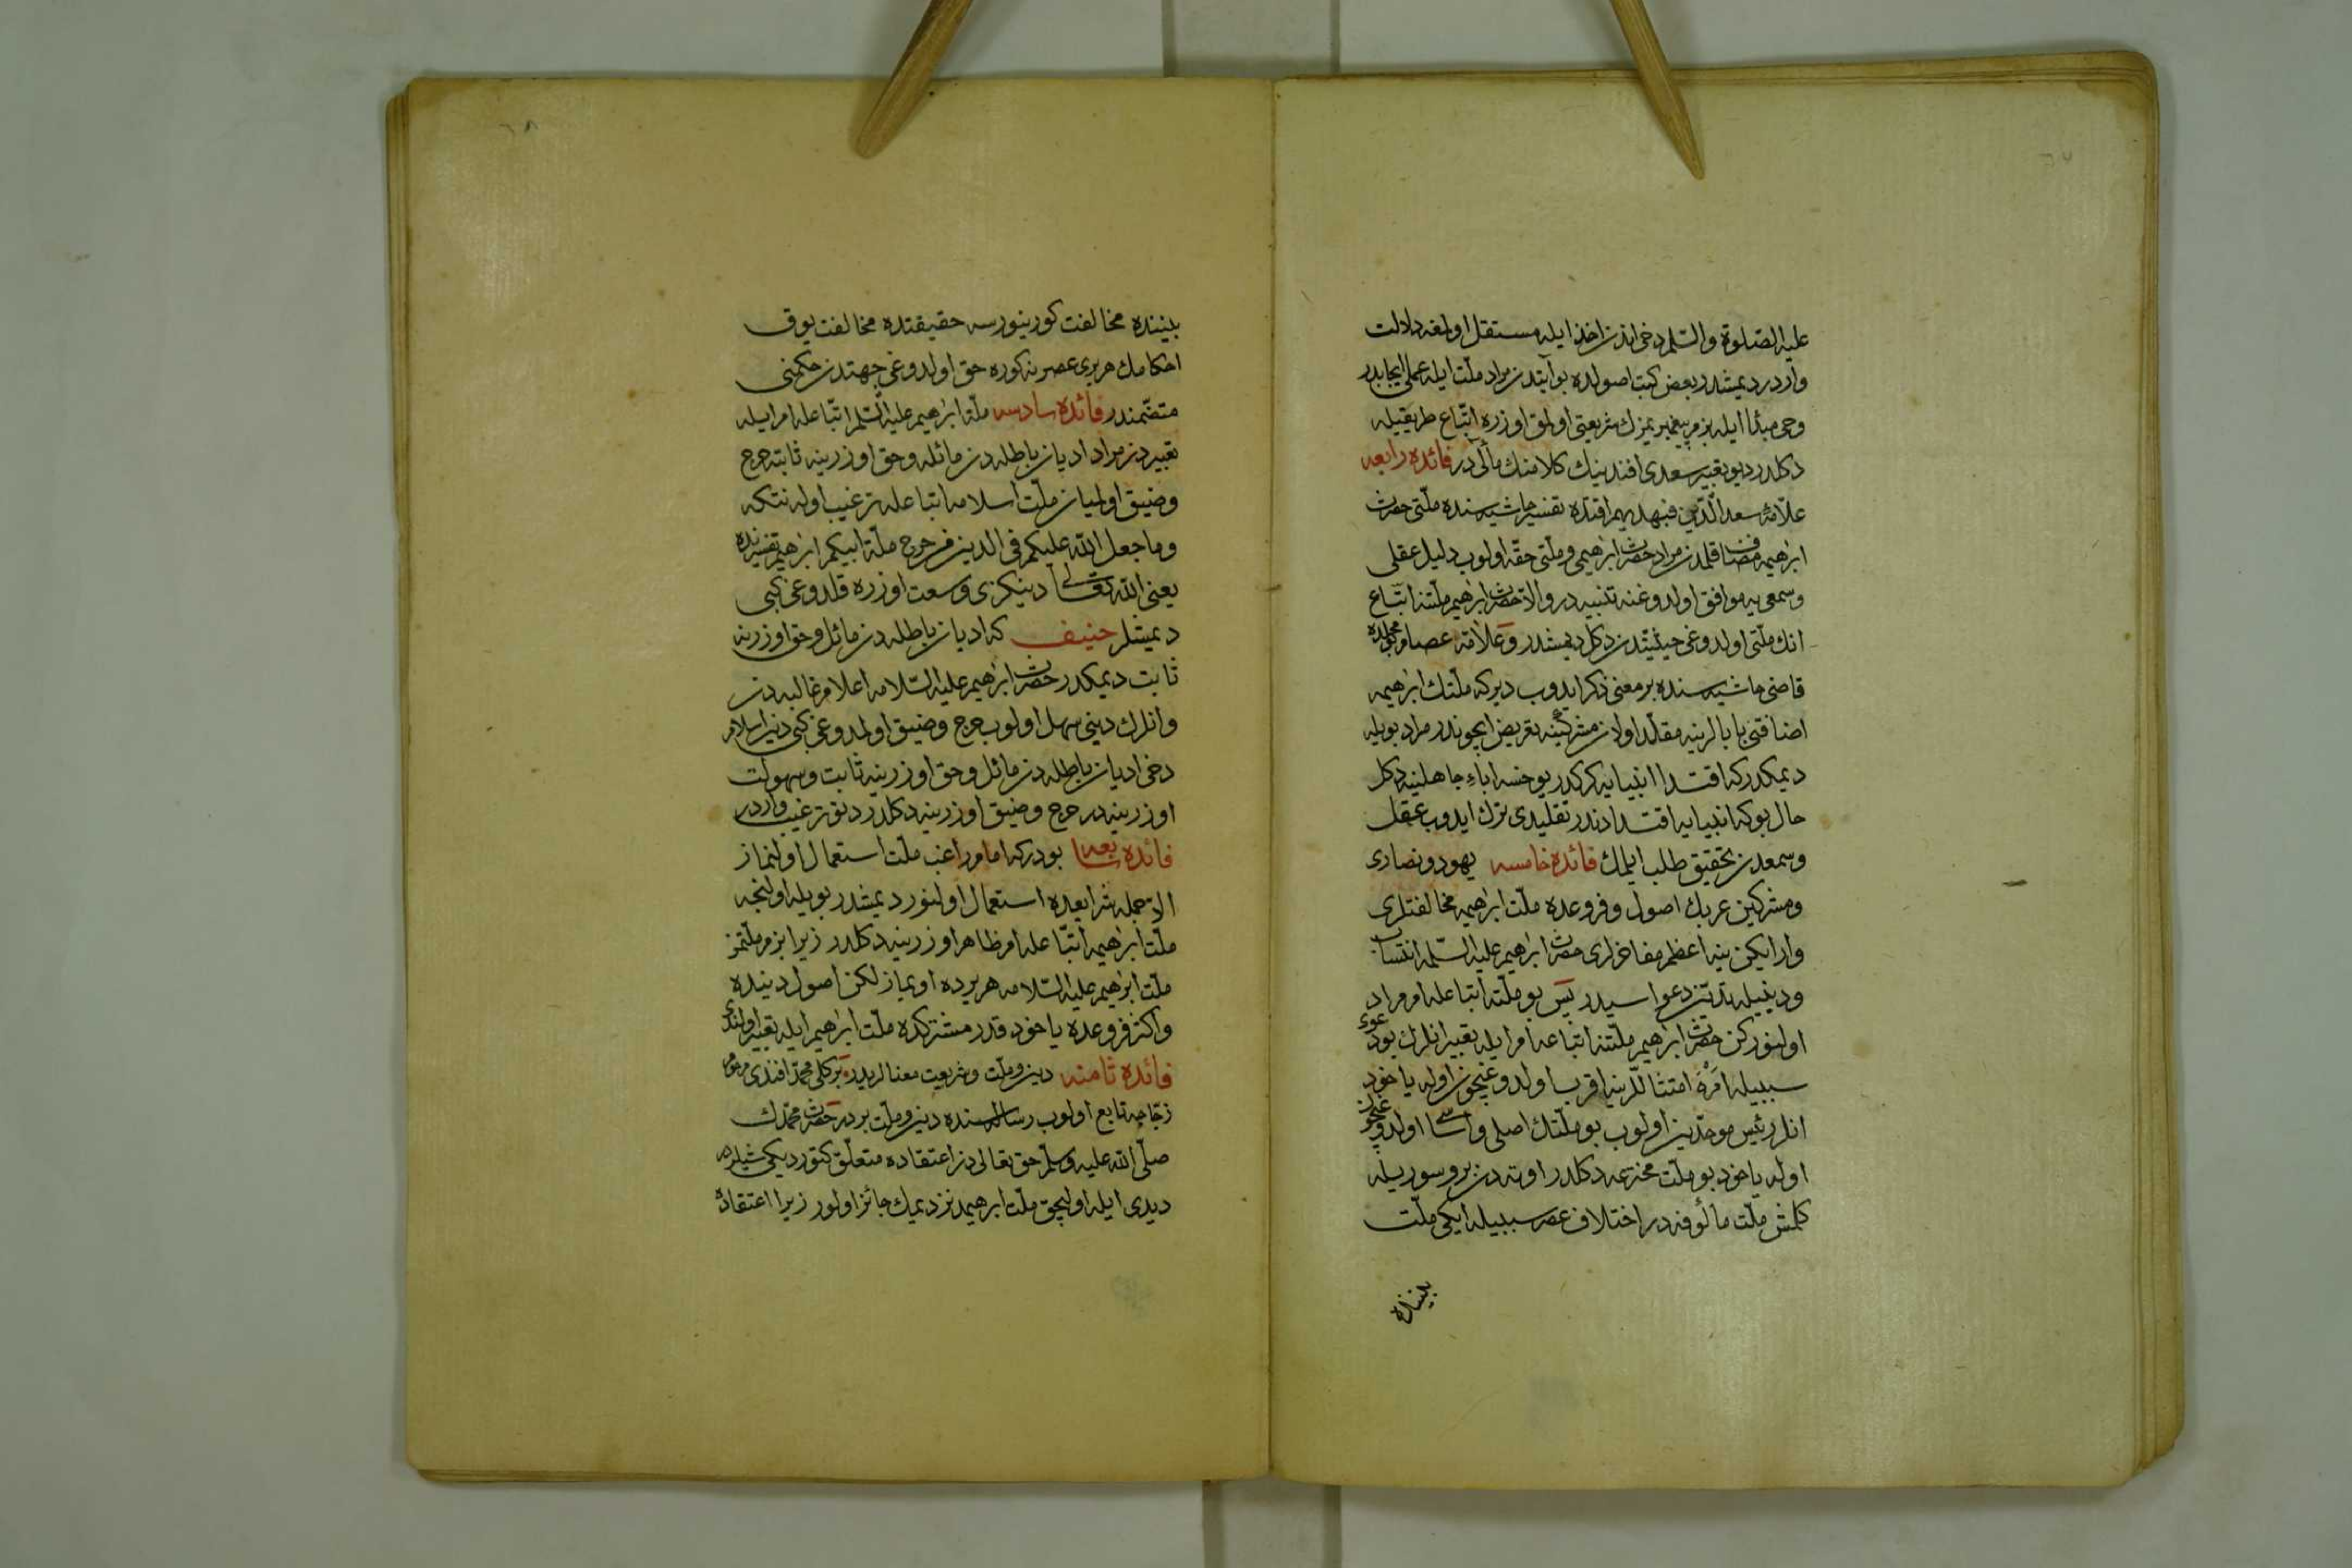 عليه الصّلوة والسّلم دخی اندن اخذ ایله مستقل اولمغه دلالت
واردر دیمشدر بعض کتب اصولده بو آیتدن مراد ملّت ایله عملی ایجابدر
وحی مبتدا ایله بزم پیغمبریمزك شریعتی اولمق اوزره اتّباع طریقیله
دکلدر دیو تعبیر سعدی افندینك کلامنك مآلی در فائدۀ رابعه
علّامۀ سعد الدّین فبهدیهم اقتده تفسیر حاشیه سنده ملّتی حضرت
ابرهیمه مضاف قلمدن مراد حضرت ابرهیمی وملّتی حقّه اولوب دلیل عقلی
وسمعی یه موافق اولدوغنه تنبیه در والّا حضرت ابرهیم ملّتنه اتّباع
انك ملّتی اولدوغی حیثیتدن دکل دیمشدر وعلّامه عصام
قاضی حاشیه سنده بر معنی ذکر ایدوب دیر که ملّتك ابرهیمه
اضافتی بابالرینه مقلّد اولان مشرکینه تعریض ایچوندر مراد بویله
دیمکدر که اقتدا انبیایه کرکدر یوخسه اباء جاهلینه دکل
حال بو که انبیایه اقتدا دندر تقلیدی ترك ایدوب عقل
وسمعدن تحقیق طلب ایلمك فائدۀ خامسه یهود ونصاری
ومشرکین عربك اصول وفروعده ملّت ابرهیمه مخالفتلری
وار ایکن ینه اعظم مفاخرلری حضرت ابرهیم علیه السّلمه انتساب
ودینیله تدیّن دعواسیدر پس بو ملّته اتباعله امر مراد
اولنور کن حضرت ابرهیم ملّتنه اتباعه امر ایله تعبیر انلرك بو دعوی
سببیله امره امتثاللرینه اقرب اولدوغیچون اوله یاخود
انلر رئیس موحّدین اولوب بو ملّتك اصلی واساسی اولدوغیچون
اوله یاخود بو ملّت مخترعه دکلدر اوته دن برو سوریله
کلمش ملّت مألوفه در اختلاف عصر سببیله ایکی ملّت
بیننده
بیننده مخالفت کورینورسه حقیقتده مخالفت یوق
احکامك هر بری عصرنه کوره حق اولدوغی جهتدن حکمتی
متضمّندر فائدۀ سادسه ملّة ابرهیم علیه السّلم اتّباعله امر ایله
تعبیردن مراد ادیان باطله دن مائله وحق اوزرینه ثابته حرج
وضیق اولمیان ملّت اسلامه اتباعله ترغیب اوله نتکه
وما جعل الله علیکم فی الدین من حرج ملّة ابیکم ابرهیم تفسیرنده
یعنی الله تعالی دینکزی وسعت اوزره قلدوغی کبی
دیمشلر حنیف که ادیان باطله دن مائل وحق اوزرنه
ثابت دیمکدر حضرت ابرهیم علیه السّلامه اعلام غالبه دن
وانلرك دینی سهل اولوب حرج وضیق اولمدوغی کبی دین اسلام
دخی ادیان باطله دن مائل وحق اوزرینه ثابت وسهولت
اوزرینه در حرج وضیق اوزرینه دکلدر دنو ترغیب واردر
فائدۀ سابعه بودر که اماوراغب ملّت استعمال اولنماز
الّا جمله شرایعده استعمال اولنور دیمشدر بویله اولنجه
ملّت ابرهیمه اتّباعله امر ظاهر اوزرینه دکلدر زیرا بزم ملّتمز
ملّت ابرهیم علیه السّلامه هر یرده اویماز لکن اصول دینیده
واکثر فروعده یاخود قدر مشترکده ملّت ابرهیم ایله تعبیر اولندی
فائدۀ ثامنه دین وملّت وشریعت معنالریدر برکلی محمّد افندی مرحوم
زجّاجه تابع اولوب رساله سنده دین وملّت بردر حضرت محمّدك
صلّی الله علیه وسلّم حق تعالی دن اعتقاده متعلّق کتوردیکی شیلره
دیدی ایله اولیجق ملّت ابرهیمدنز دیمك جائز اولور زیرا اعتقادده